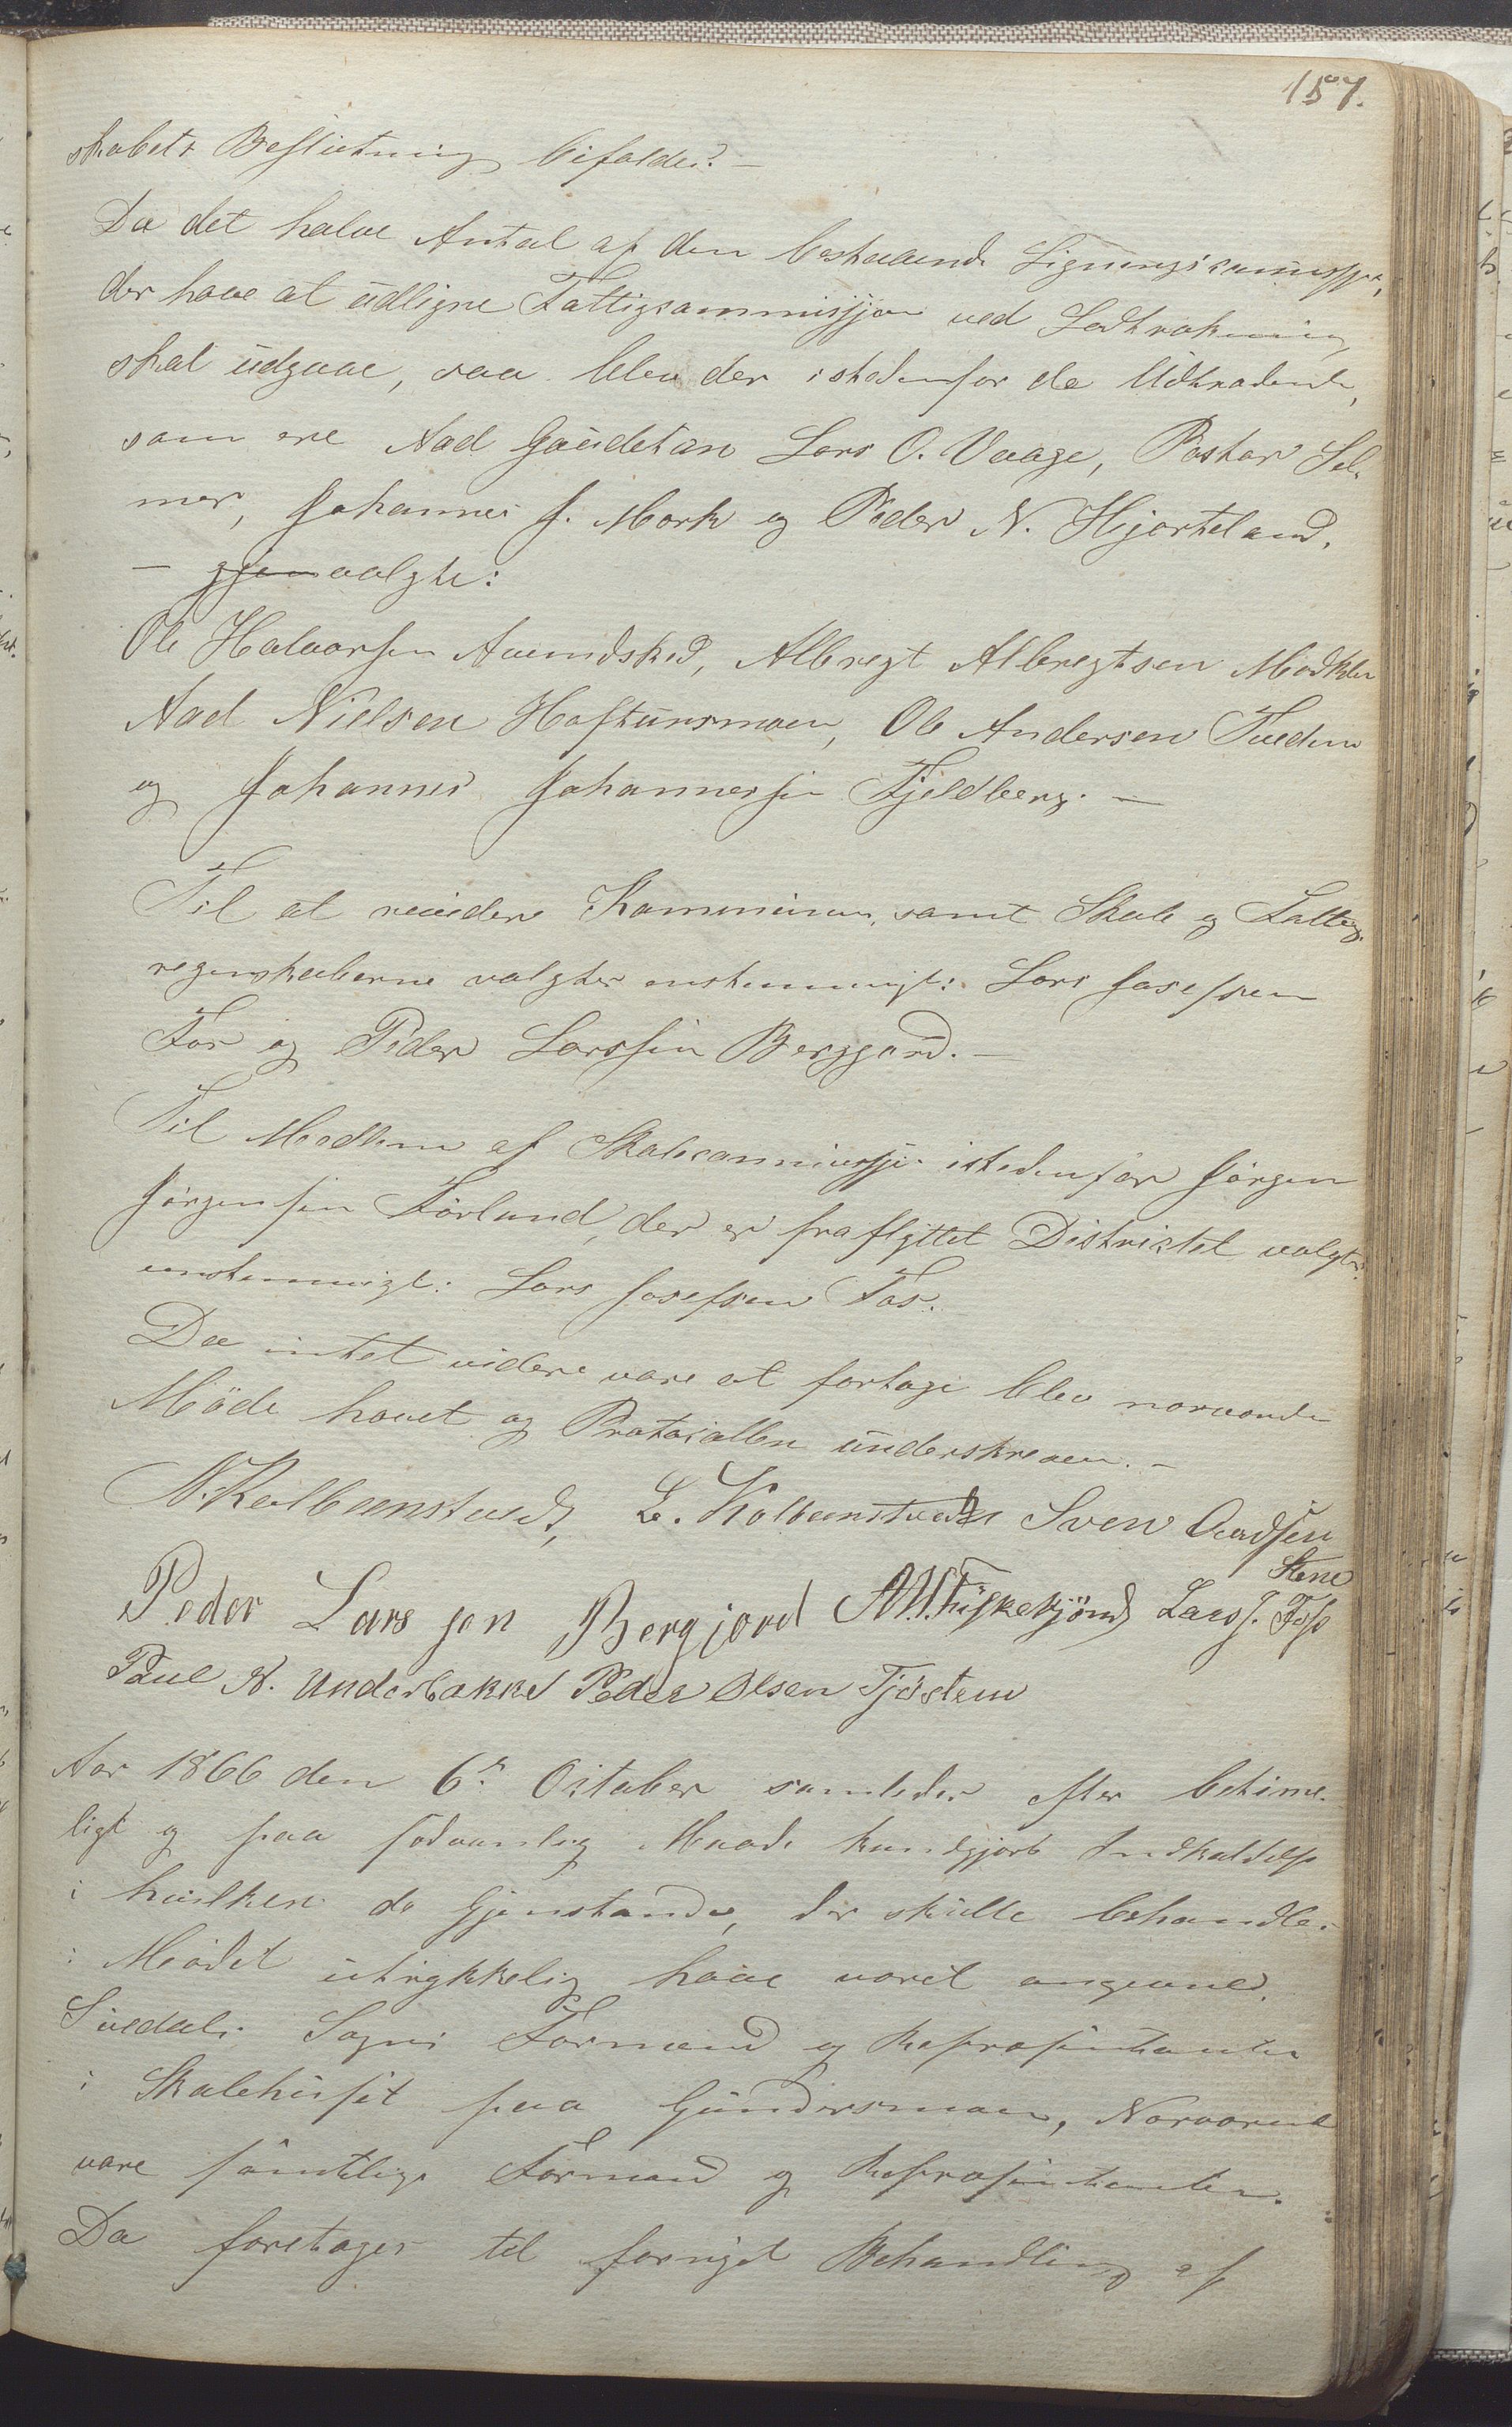 157.
skabets Beslutning bifaldes? –
Da det halve Antal af den bestaaende Ligningscommission,
der have at udligne Fattigcommissjon ved Lodtrækning
skal udgaae, saa blev der istedenfor de Udtrædende,
som ere Aad Gaudetun Lars O. Vaage, Pastor Sel-
mer, Johannes J. Mork og Peder N. Hjorteland.
– gjenvalgte:
Ole Halvorsen Auendsked, Albregt Albregtsen
Aad Nielsen Hoftunsmoen, Ole Andersen Tveden
og Johannes Johannessen Fjeldberg. –
Til at revidere Kommunens, samt Skole og Fattig-
regnskaberne valgtes enstemmigt: Lars Josefsen
Fos og Peder Larssen Berggard. –
Til Medlem af Skolecommissjon istedenfor Jørgen
Jørgensen Førlund, der er fraflyttet Districtet valgtes
enstemmigt: Lars Josefsen Fos.
Da intet videre vare at fortage blev nærværende
Møde hævet og Protocollen underskreven. –
N. Kolbeenstvedt, L. Kolbeenstvedt Sven Aadsen
Stene
Peder Larssen Bergjord A. N. Fiskekjønd Lars J. Foss
Paul N. Underbakke Peder Olsen Tjøstem
Aar 1866 den 6te October samledes efter betime-
ligt og paa sædvanlig Maade kundgjort Indkaldelse
i hvilken de Gjenstande, der skulle behandles
i Mødet utrykkelig have været angivne.
Suledals Sogns Formænd og Repræsentanter
i Skolehuset paa Gundersmoen, Nærværende
vare samtlige Formænd og Repræsentanter.
Da foretages til fornyet Behandling af